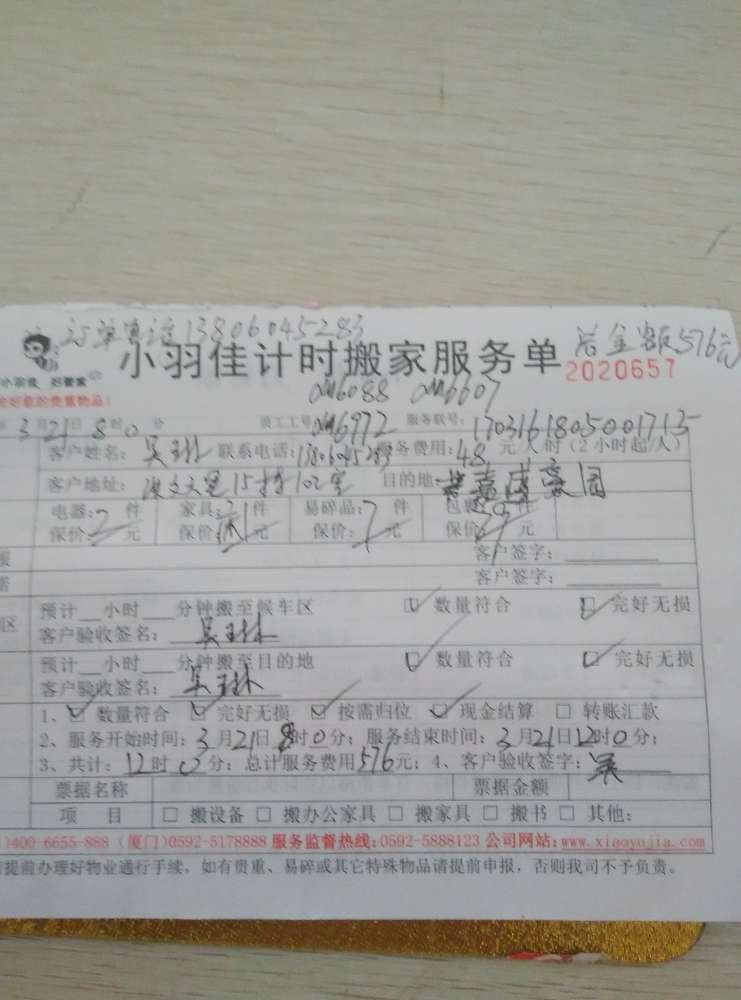 订单电话13806045283
总金额576元
小羽佳 好管家
小羽佳计时搬家服务单
2020657
好您的贵重物品!
xm6088 xm6607
3月21日8时0分 员工工号xm6972 服务联号:1703161805001715
客户姓名: 吴 联系电话:13806045283 服务费用:48元/人时(2小时起/人)
客户地址: 15 102室 目的地: 嘉盛豪园
电器: 件 家具: 件 易碎品: 件 包裹: 件
保价: 元 保价: 元 保价: 元 保价: 元
客户签字:
客户签字:
预计__小时___分钟搬至候车区 数量符合 完好无损
区
客户验收签名: 吴
预计__小时___分钟搬至目的地 数量符合 完好无损
客户验收签名: 吴
1、 数量符合 完好无损 按需归位 现金结算 转账汇款
2、服务开始时间:3月21日8时0分;服务结束时间:3月21日12时0分;
3、共计:12时0分;总计服务费用576元;4、客户验收签字:吴
票据名称 票据金额
项 目 搬设备 搬办公家具 搬家具 搬书 其他:
)400-6655-888(厦门)0592-5178888 服务监督热线:0592-5888123 公司网站:www.xiaoyujia.com
提前办理好物业通行手续,如有贵重、易碎或其它特殊物品请提前申报,否则我司不予负责。